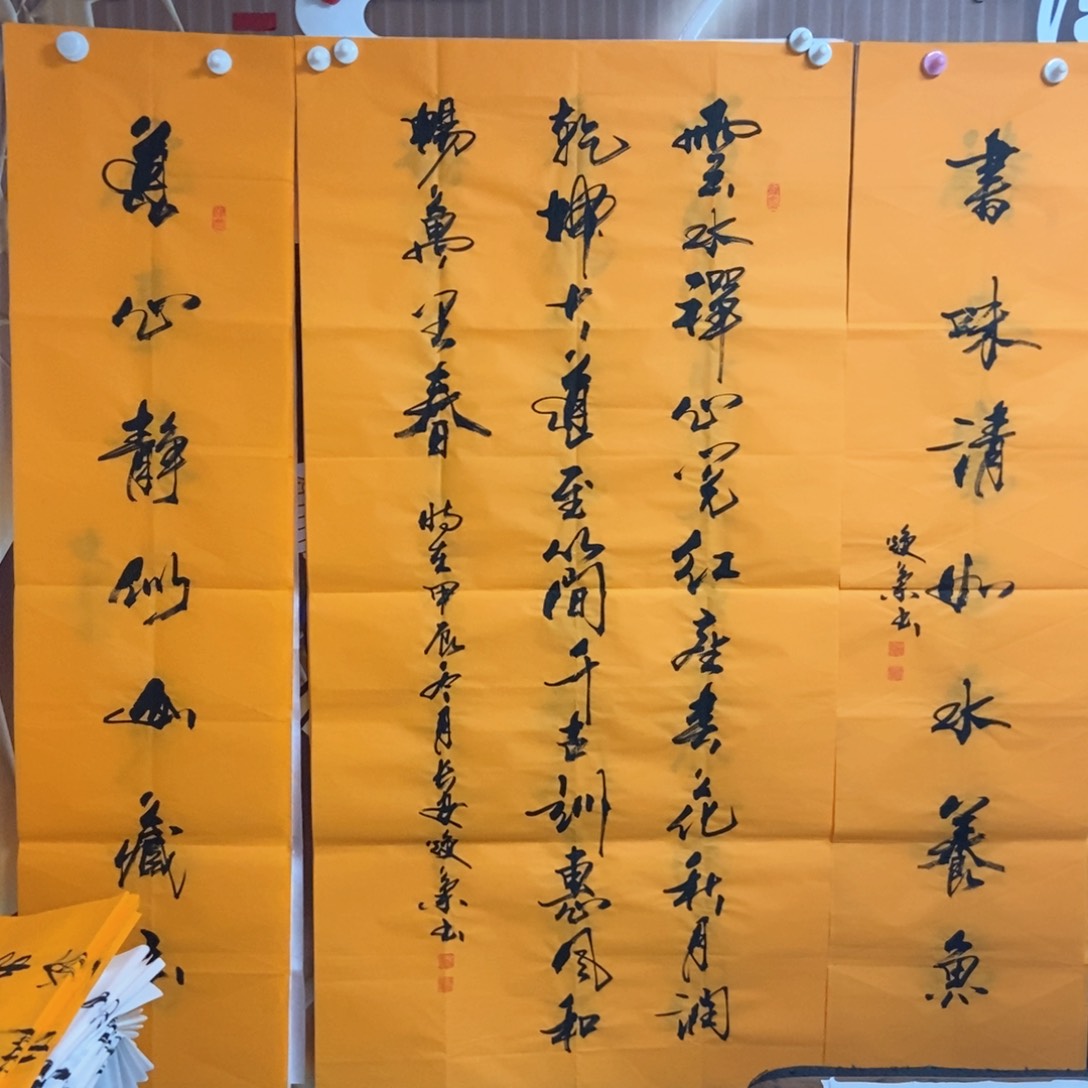 書味清如水養魚
雲水禪心覺紅塵春花秋月潤
乾坤大道至簡千古訓惠風和
暢萬里春
時在甲辰冬月長安書
道心靜似山藏